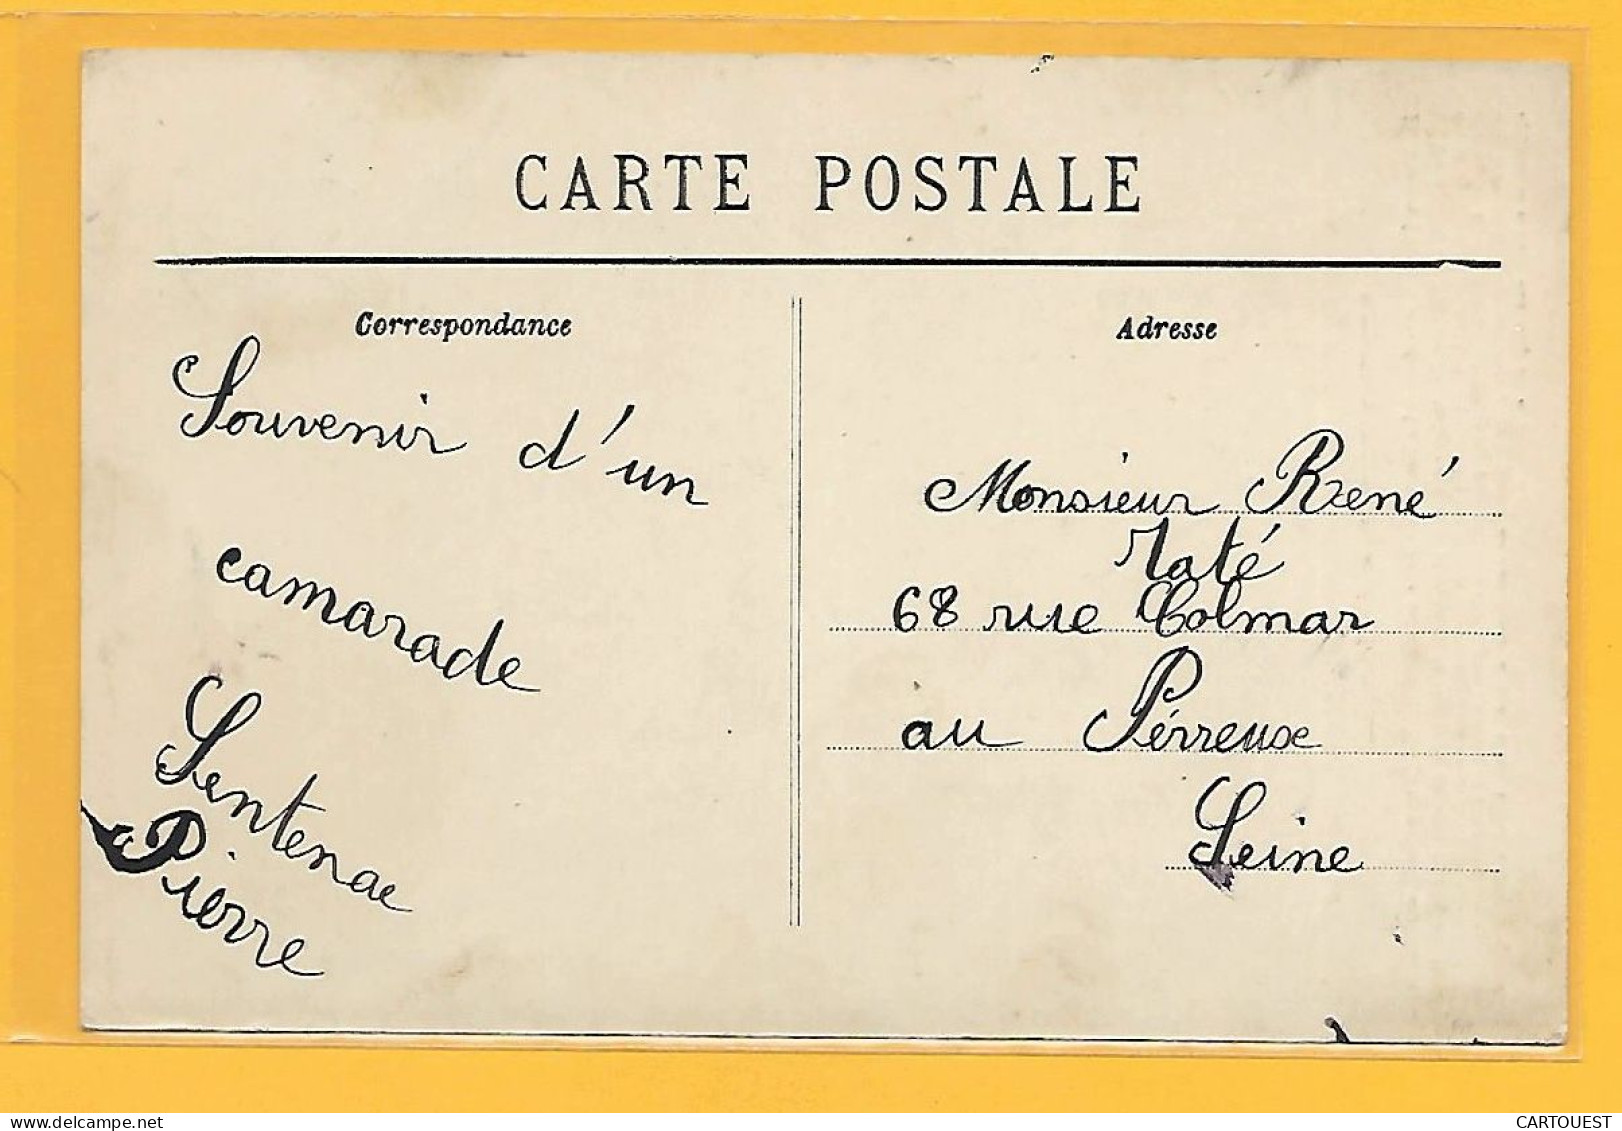 CARTE POSTALE
Correspondance
Souvenir d'un
camarade
Sentenac
Pierre
Adresse
Monsieur René
68 rue Colmar
au Pérreux
Seine
CARTOUEST